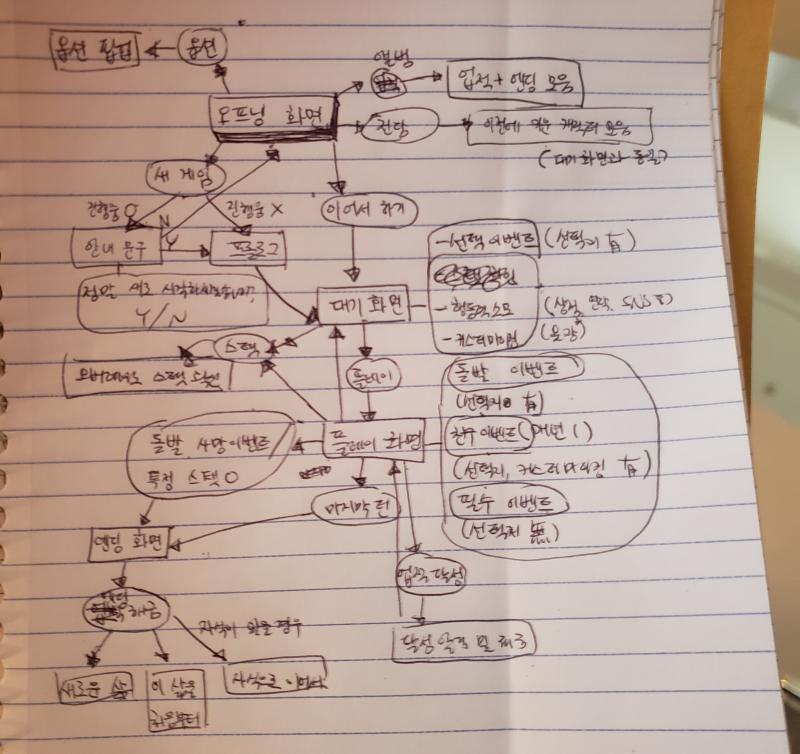 옵션 팝업
옵션
앨범
업적 + 엔딩 모음
오프닝 화면
전당
이전에 키운 캐릭터 모음
(대기 화면과 동일)
새 게임
진행중 O
N
Y
진행중 X
이어서 하기
안내 문구
프롤로그
정말 새로 시작하시겠습니까?
Y/N
대기 화면
- 선택 이벤트 (선택지 有)
- 행동력 소모
(상점, 연락, SNS 등)
- 커스터마이징
스탯
플레이
돌발 이벤트
(선택지 有)
플레이 화면
돌발 사망 이벤트
특정 스탯 0
(매년 1)
(선택지, 커스터마이징 有)
필수 이벤트
(선택지 無)
마지막 턴
엔딩 화면
업적 달성
엔딩
해금
자식이 있을 경우
달성 알림 및 해금
새로운 삶
이 삶을
처음부터
자식으로 이어서